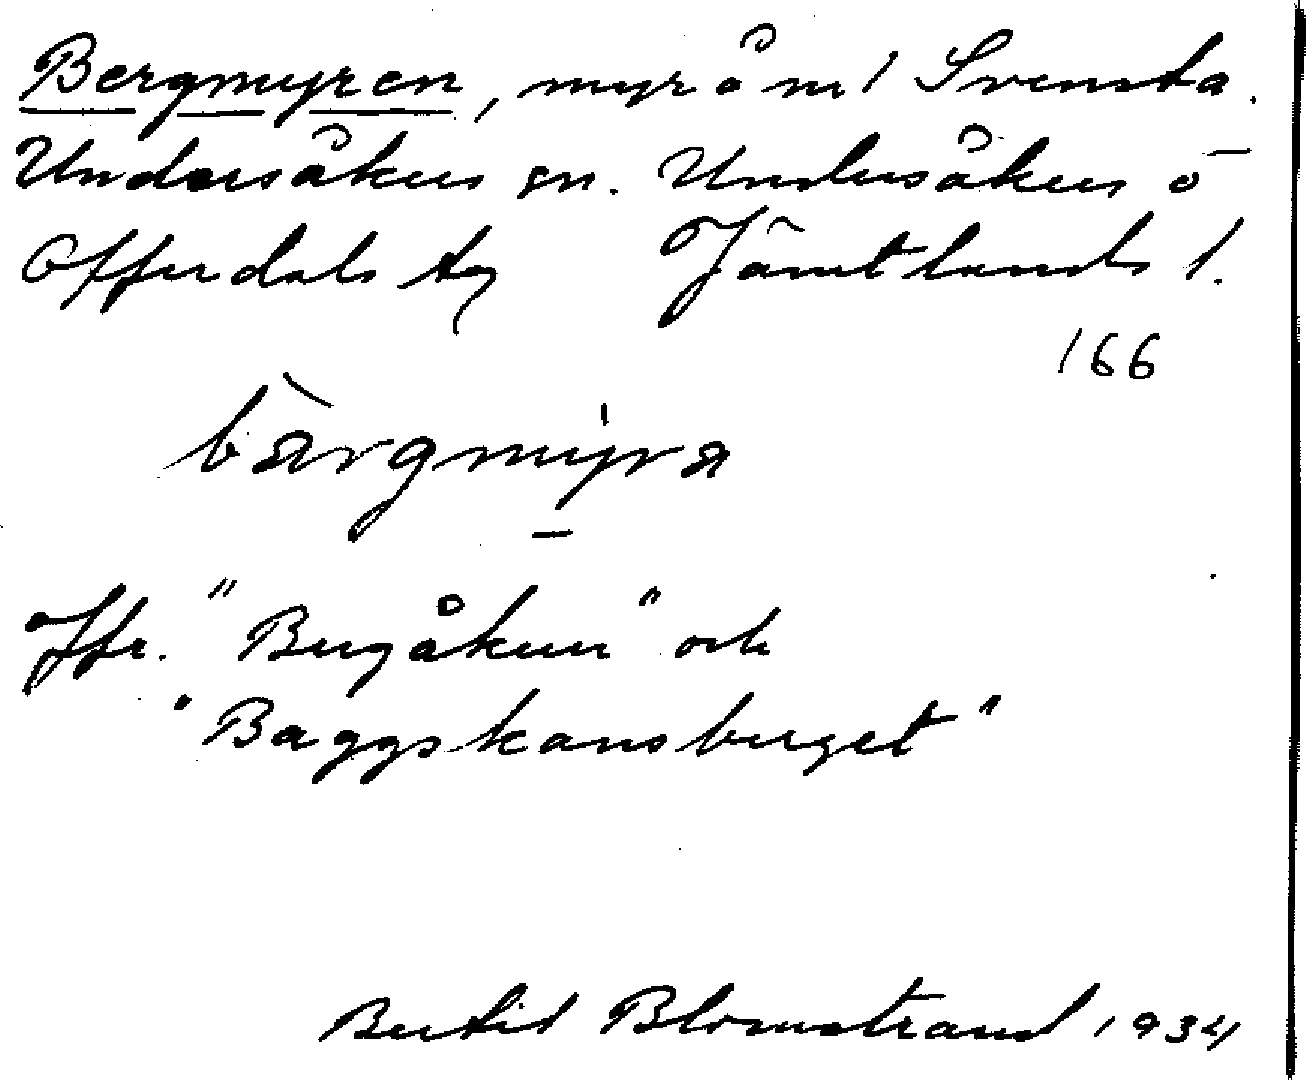 Bergmyren, myr å nr 1 Svensta.
Undersåkers sn. Undersåkers o
Offerdals tg Jämtlands l.
166
bärgmyra
Jfr. "Bergåkern" och
"Baggskansberget"
Bertil Blomstrand 1934